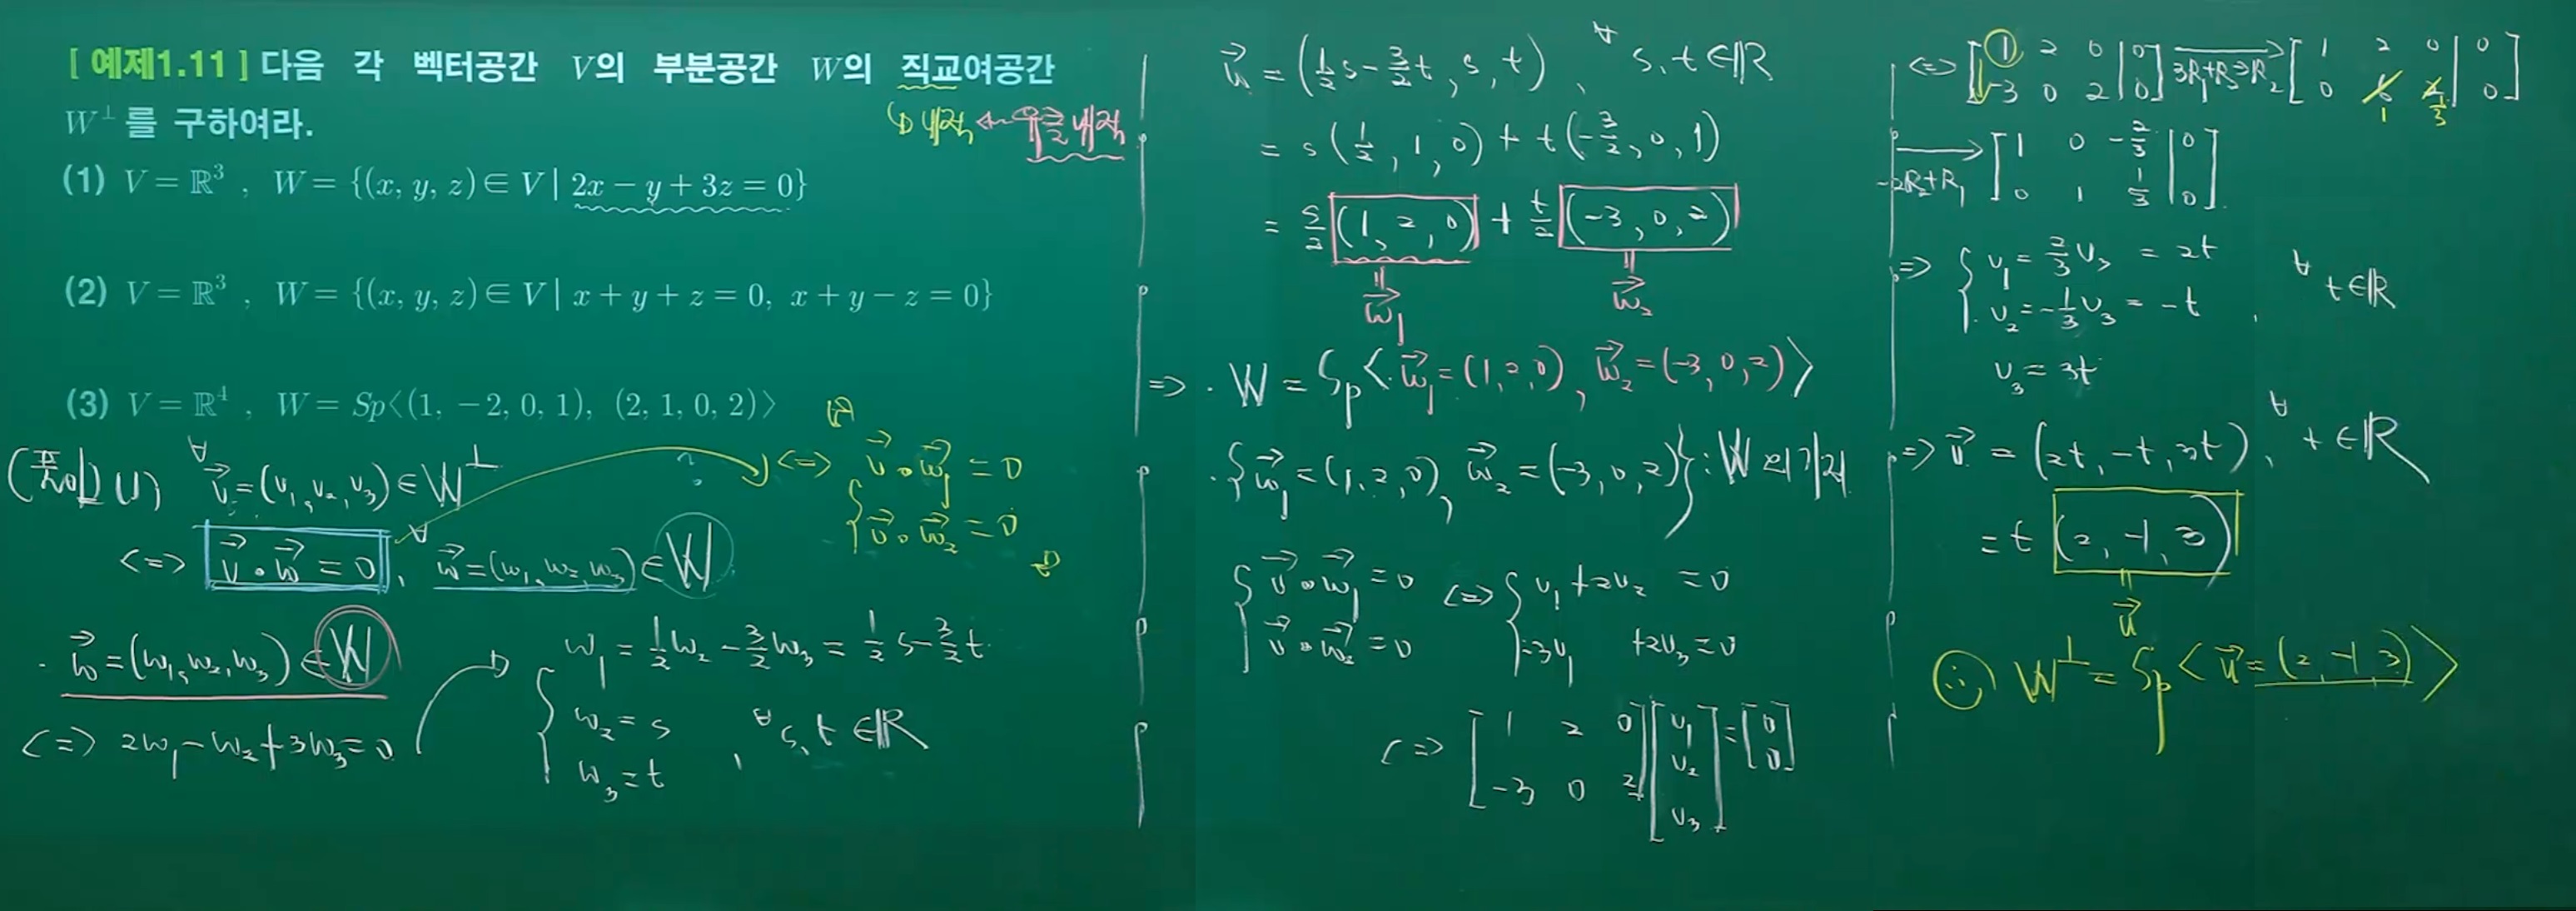 [ 예제1.11 ] 다음 각 벡터공간 V의 부분공간 W의 직교여공간
W⊥ 를 구하여라.
↳ 내적 ↔ 표준내적
(1) V = ℝ³ , W = {(x, y, z) ∈ V | 2x − y + 3z = 0}
(2) V = ℝ³ , W = {(x, y, z) ∈ V | x + y + z = 0, x + y − z = 0}
(3) V = ℝ⁴ , W = Sp⟨(1, −2, 0, 1), (2, 1, 0, 2)⟩
(풀이) (1) ∀v⃗ = (v₁, v₂, v₃) ∈ W⊥
⟺ v⃗ ∘ w⃗ = 0 , ∀w⃗ = (w₁, w₂, w₃) ∈ W
?
⟺ { v⃗ ∘ w⃗₁ = 0
v⃗ ∘ w⃗₂ = 0
· w⃗ = (w₁, w₂, w₃) ∈ W
⟺ 2w₁ − w₂ + 3w₃ = 0
{ w₁ = 1/2 w₂ − 3/2 w₃ = 1/2 s − 3/2 t
w₂ = s
w₃ = t , ∀s, t ∈ ℝ
w⃗ = (1/2 s − 3/2 t , s , t) , ∀s, t ∈ ℝ
= s (1/2 , 1 , 0) + t (−3/2 , 0 , 1)
= s/2 (1 , 2 , 0) + t/2 (−3 , 0 , 2)
‖ ‖
w⃗₁ w⃗₂
⟹ · W = Sp⟨ w⃗₁ = (1, 2, 0) , w⃗₂ = (−3, 0, 2) ⟩
· { w⃗₁ = (1, 2, 0) , w⃗₂ = (−3, 0, 2) } : W의 기저
{ v⃗ ∘ w⃗₁ = 0 ⟺ { v₁ + 2v₂ = 0
v⃗ ∘ w⃗₂ = 0 −3v₁ + 2v₃ = 0
⟺ [ 1 2 0 ] [ v₁ ] = [ 0 ]
[ −3 0 2 ] [ v₂ ] [ 0 ]
[ v₃ ]
⟺ [ 1 2 0 | 0 ] 3R₁+R₂→R₂ [ 1 2 0 | 0 ]
[ −3 0 2 | 0 ] [ 0 6 2 | 0 ]
1 1/3
−2R₂+R₁ [ 1 0 −2/3 | 0 ]
[ 0 1 1/3 | 0 ]
⟹ { v₁ = 2/3 v₃ = 2t
v₂ = −1/3 v₃ = −t , ∀t ∈ ℝ
v₃ = 3t
⟹ v⃗ = (2t, −t, 3t) , ∀t ∈ ℝ
= t (2, −1, 3)
‖
u⃗
W⊥ = Sp⟨ u⃗ = (2, −1, 3) ⟩